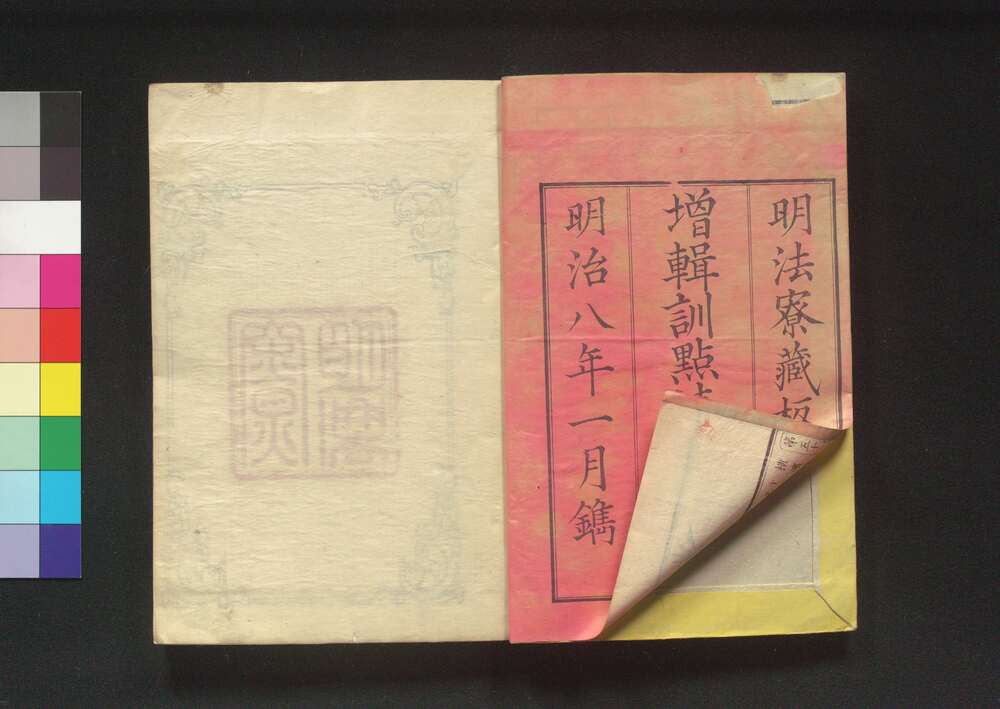 明法寮藏板
増輯訓點
明治八年一月鐫